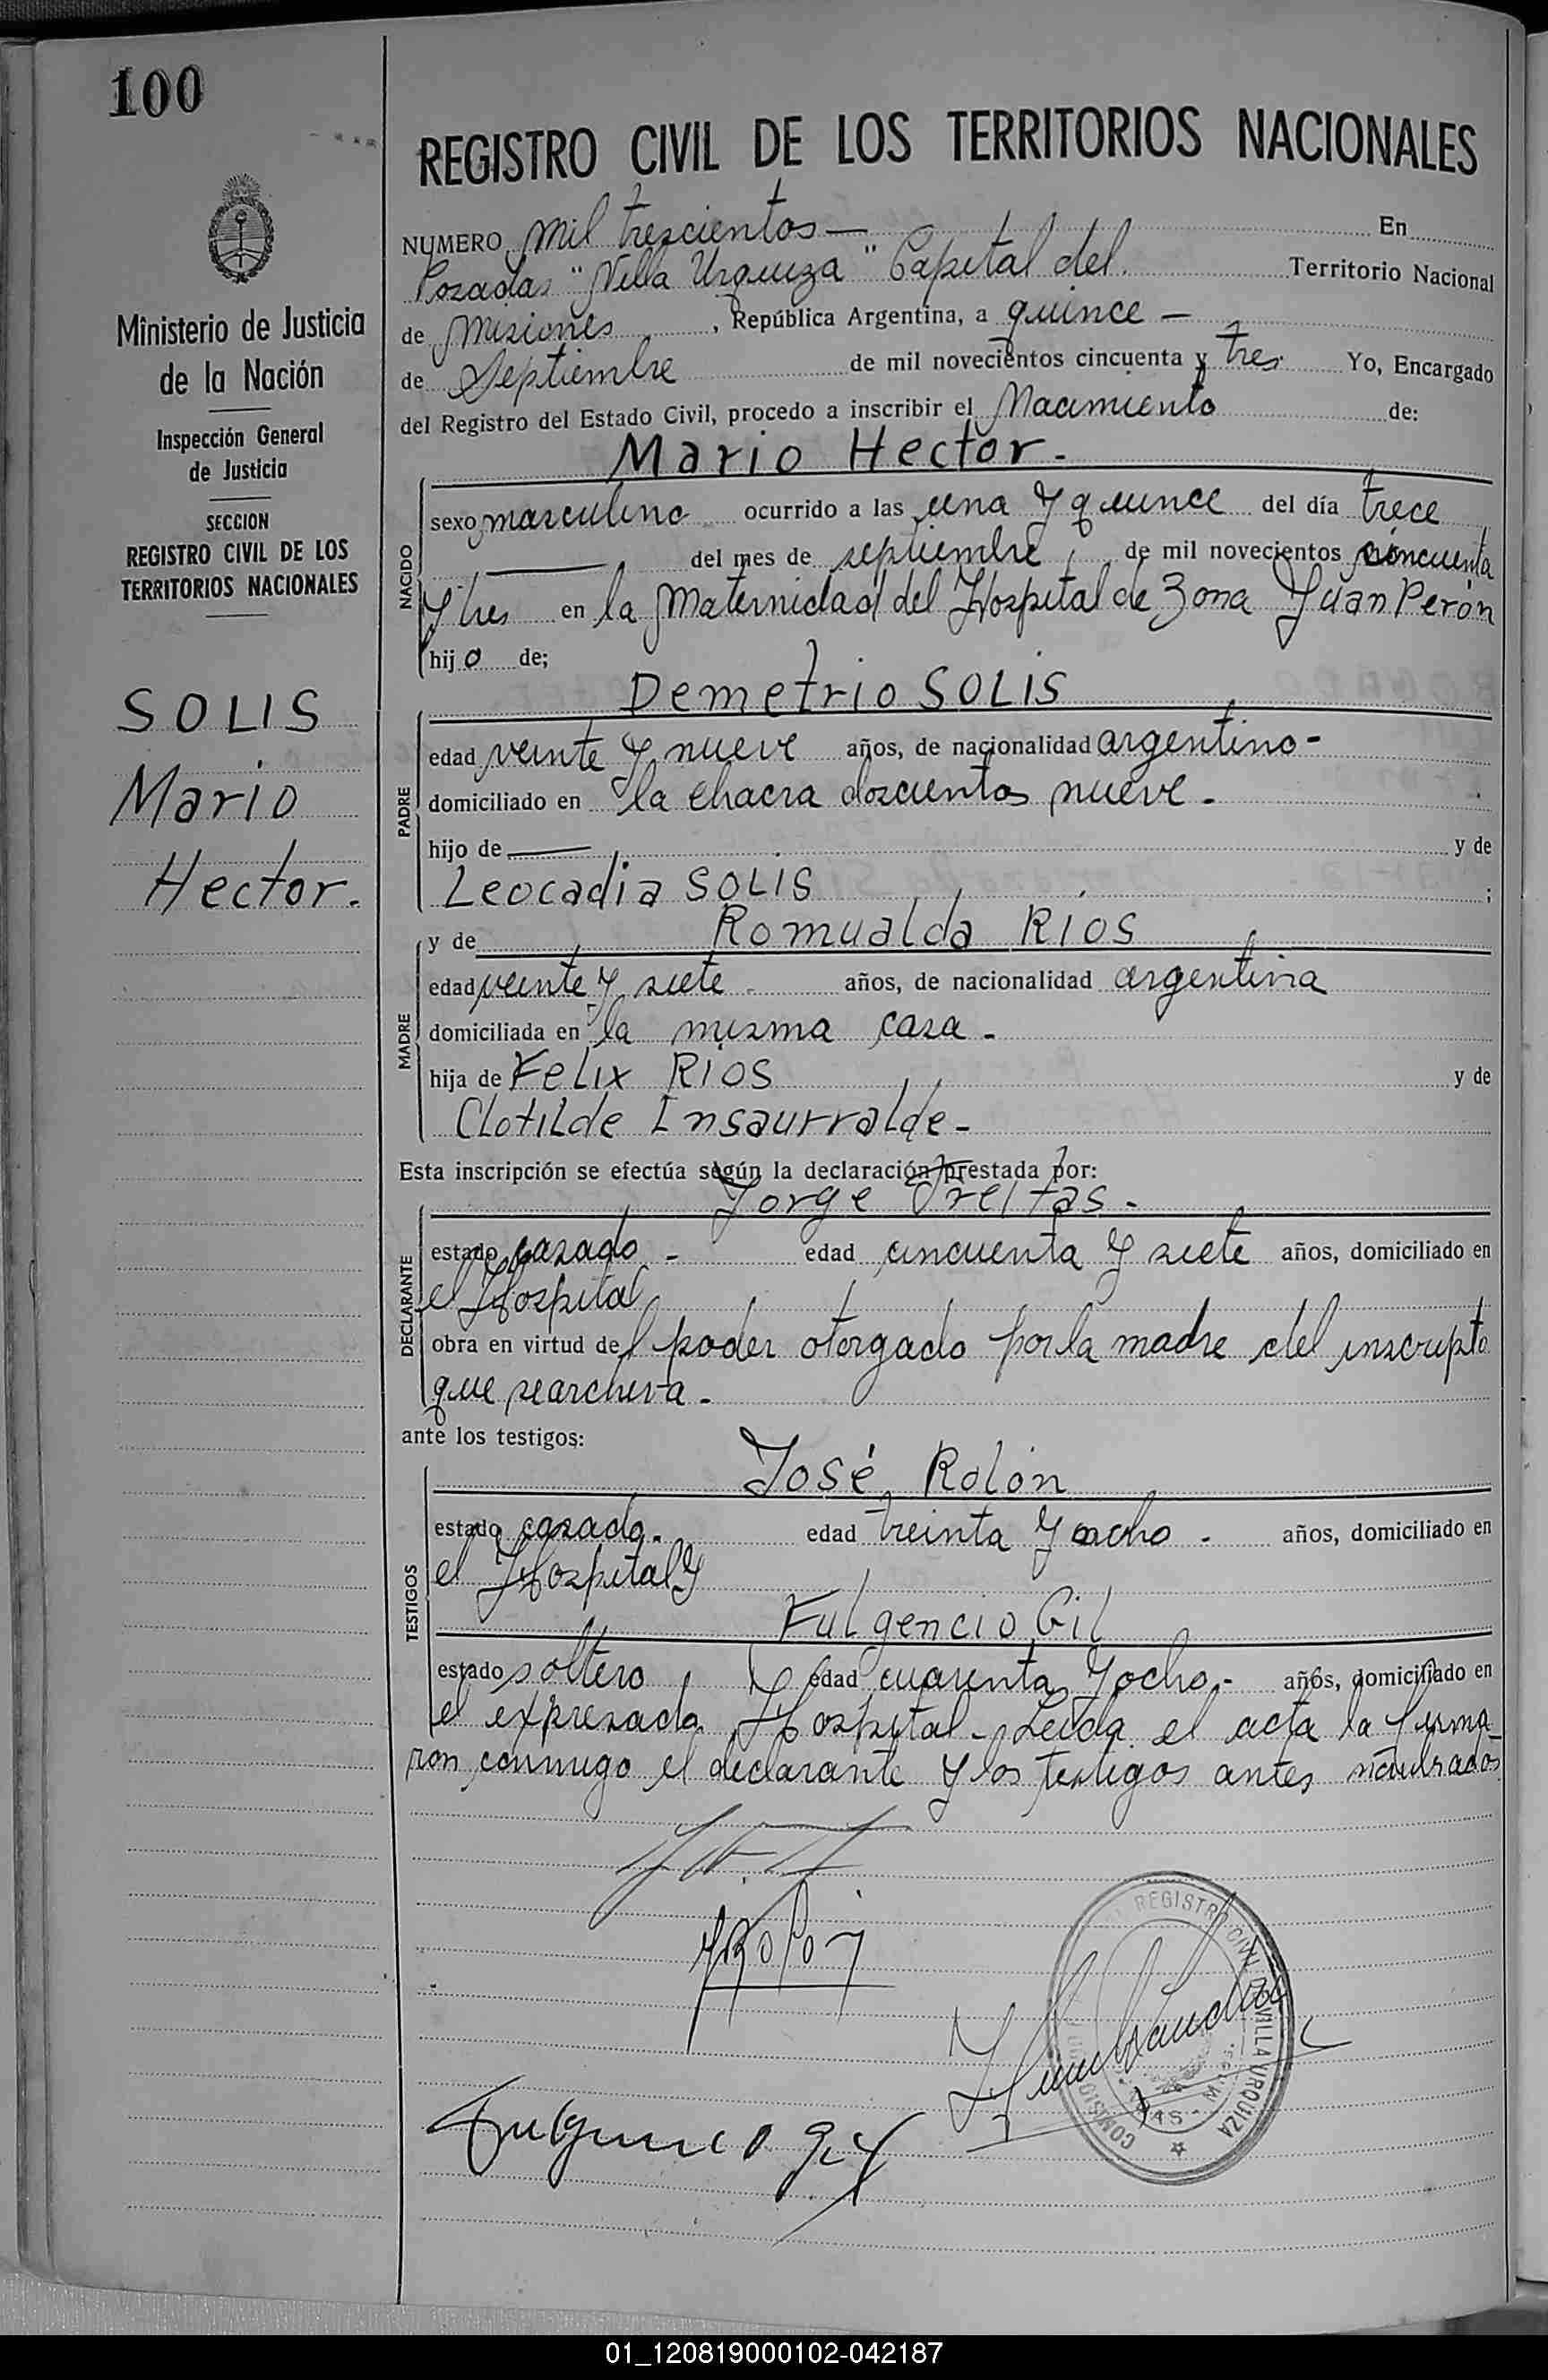 100
Ministerio de Justicia
de la Nación
Inspección General
de Justicia
SECCION
REGISTRO CIVIL DE LOS
TERRITORIOS NACIONALES
SOLIS
Mario
Hector.
REGISTRO CIVIL DE LOS TERRITORIOS NACIONALES
NUMERO mil trescientos — En
Posadas "Villa Urquiza" Capital del Territorio Nacional
de Misiones, República Argentina, a quince —
de Septiembre de mil novecientos cincuenta y tres. Yo, Encargado
del Registro del Estado Civil, procedo a inscribir el Nacimiento de:
Mario Hector.-
NACIDO
sexo masculino ocurrido a las una y quince del día trece
— del mes de septiembre, de mil novecientos cincuenta
y tres en la Maternidad del Hospital de Zona Juan Perón
hijo de;
Demetrio SOLIS
PADRE
edad veinte y nueve años, de nacionalidad argentino-
domiciliado en la chacra doscientos nueve.-
hijo de — y de
Leocadia SOLIS ;
MADRE
y de Romualda RIOS
edad veinte y siete - años, de nacionalidad argentina
domiciliada en la misma casa.-
hija de Felix RIOS y de
Clotilde Insaurralde-
Esta inscripción se efectúa según la declaración prestada por:
Jorge Freitas.-
DECLARANTE
estado casado - edad cincuenta y siete años, domiciliado en
el Hospital
obra en virtud del poder otorgado por la madre del inscripto
que se archiva.-
ante los testigos:
TESTIGOS
José Rolón
estado casado.- edad treinta y ocho - años, domiciliado en
el Hospital y
Fulgencio Gil
estado soltero, edad cuarenta y ocho.- años, domiciliado en
el expresado Hospital.- Leida el acta la firma-
ron conmigo el declarante y los testigos antes nombrados
JRolon
Fulgencio Gil
REGISTRO CIVIL VILLA URQUIZA
01_120819000102-042187